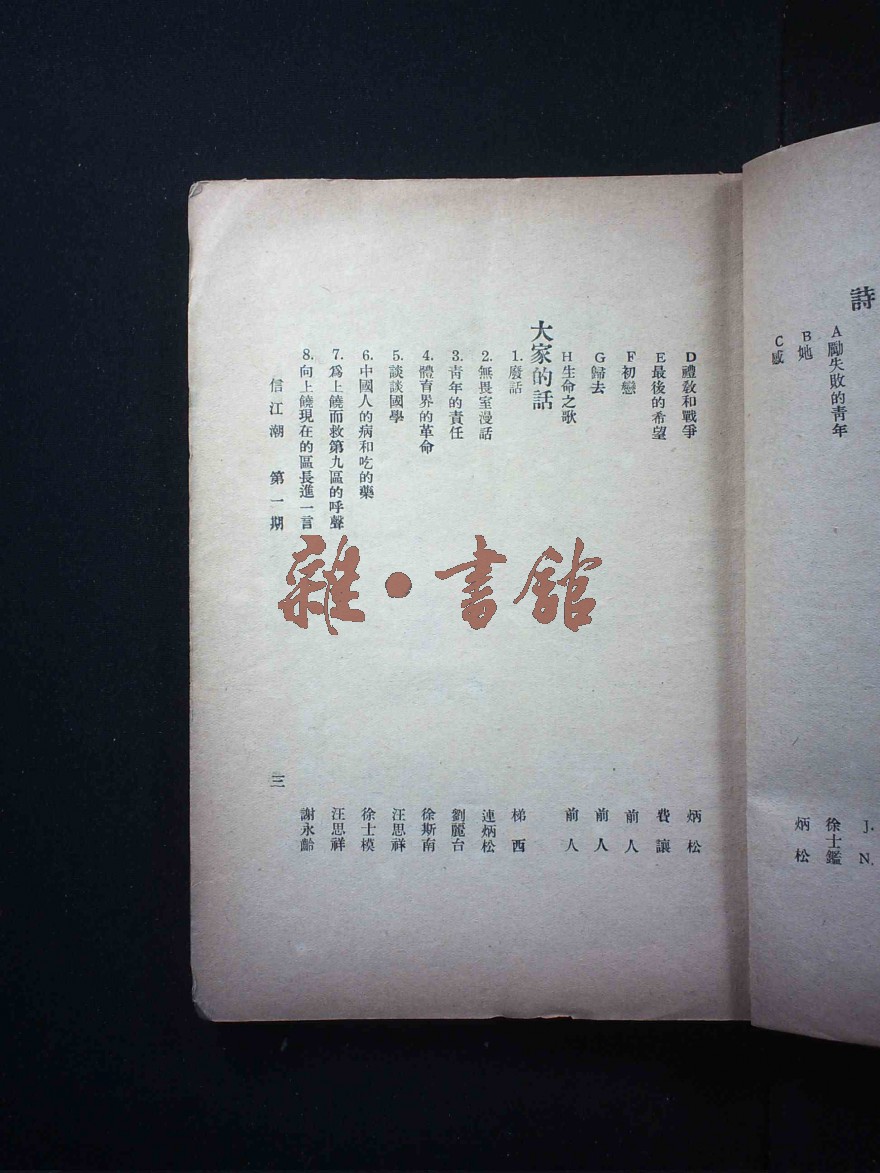 詩
A 勵失敗的靑年
B 她
C 感
J. N.
徐士鑑
炳松
D 禮敎和戰爭
炳松
E 最後的希望
費讓
F 初戀
前人
G 歸去
前人
H 生命之歌
前人
大家的話
1. 廢話
梯西
2. 無畏室漫話
連炳松
3. 靑年的責任
劉麗台
4. 體育界的革命
徐斯南
5. 談談國學
汪思祥
6. 中國人的病和吃的藥
徐士模
7. 爲上饒而救第九區的呼聲
汪思祥
8. 向上饒現在的區長進一言
謝永齡
信江潮 第一期
三
雜·書館